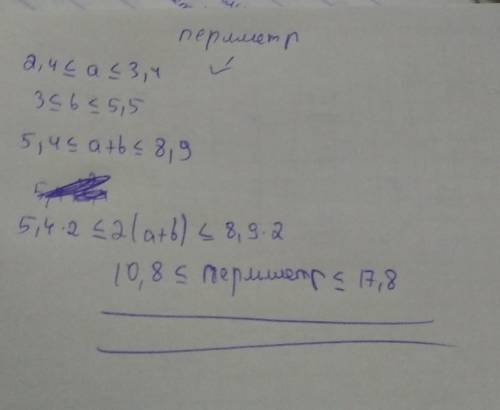 периметр
2,4 ≤ a ≤ 3,4 ✓
3 ≤ b ≤ 5,5
5,4 ≤ a+b ≤ 8,9
5,4·2 ≤ 2(a+b) ≤ 8,9·2
10,8 ≤ периметр ≤ 17,8